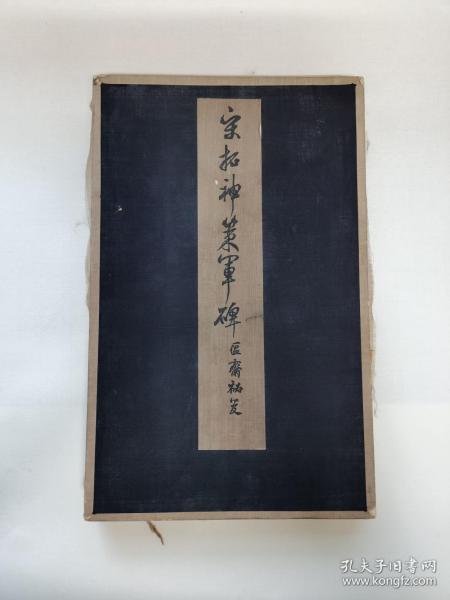 宋拓神策军碑 匠斋秘笈
孔夫子旧书网
www.kongfz.com